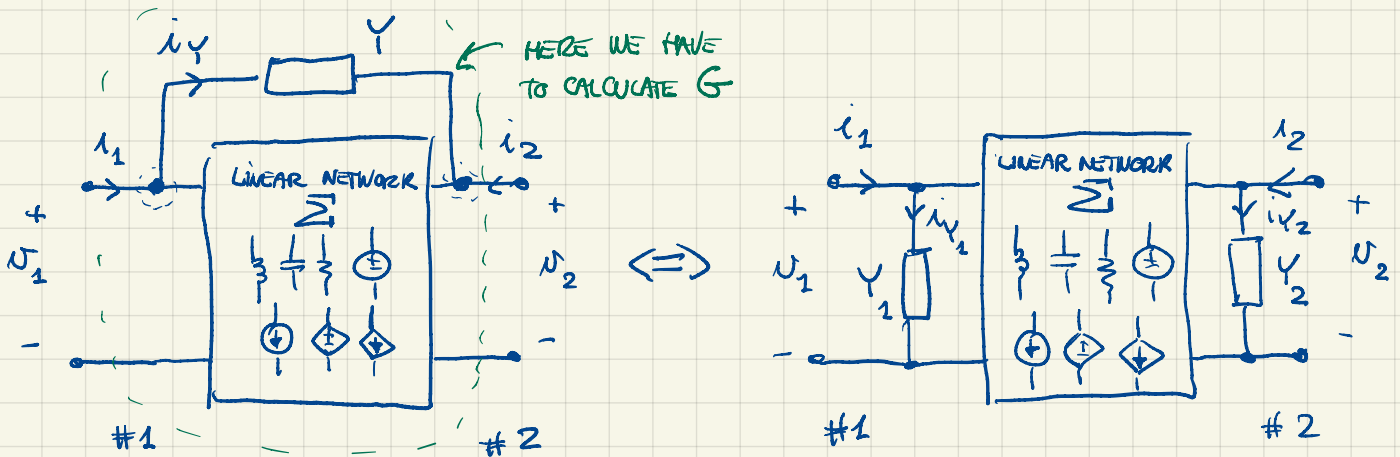 i_Y
Y
HERE WE HAVE
TO CALCULATE G
i_1
i_2
LINEAR NETWORK
Σ
+
v_1
-
+
v_2
-
#1
#2
<=>
i_1
i_2
LINEAR NETWORK
Σ
i_Y_1
i_Y_2
+
v_1
-
Y_1
Y_2
+
v_2
-
#1
#2